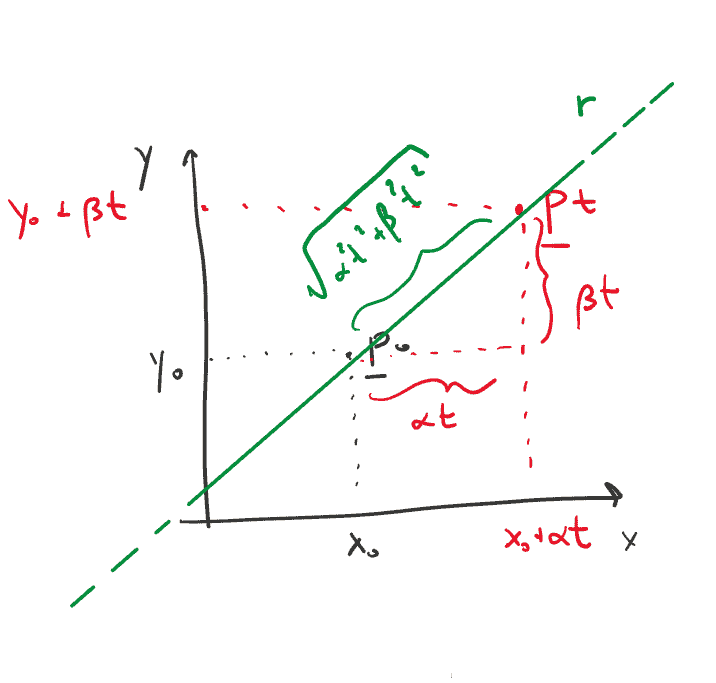 r
y
y₀ + βt
√α²t²+β²t²
Pt
βt
y₀
P₀
αt
x₀
x₀+αt
x